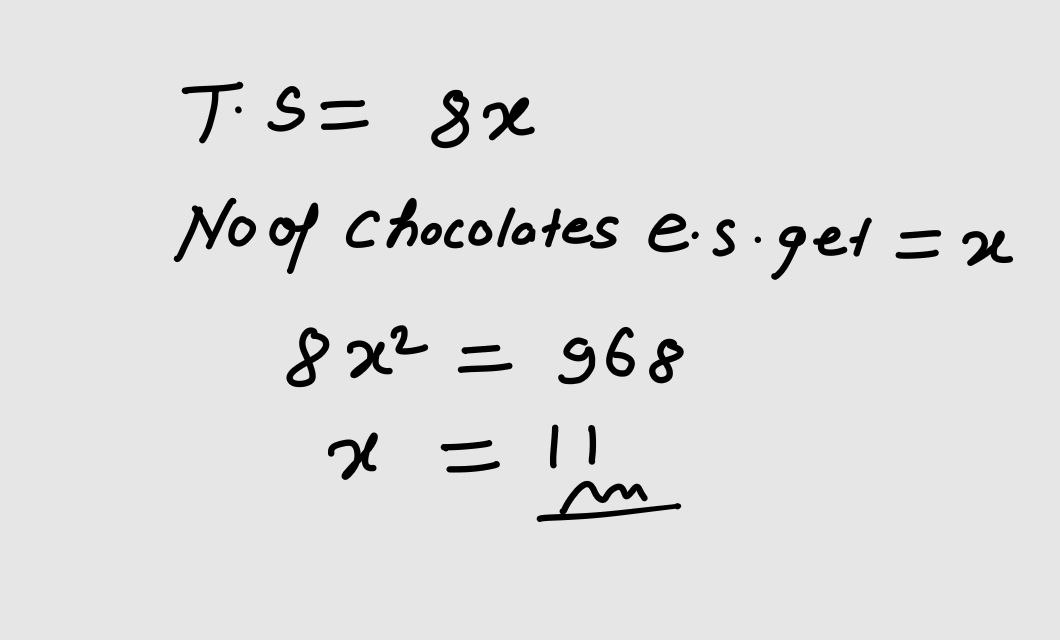 T. S = 8x
No of chocolates e.s. get = x
8x² = 968
x = 11